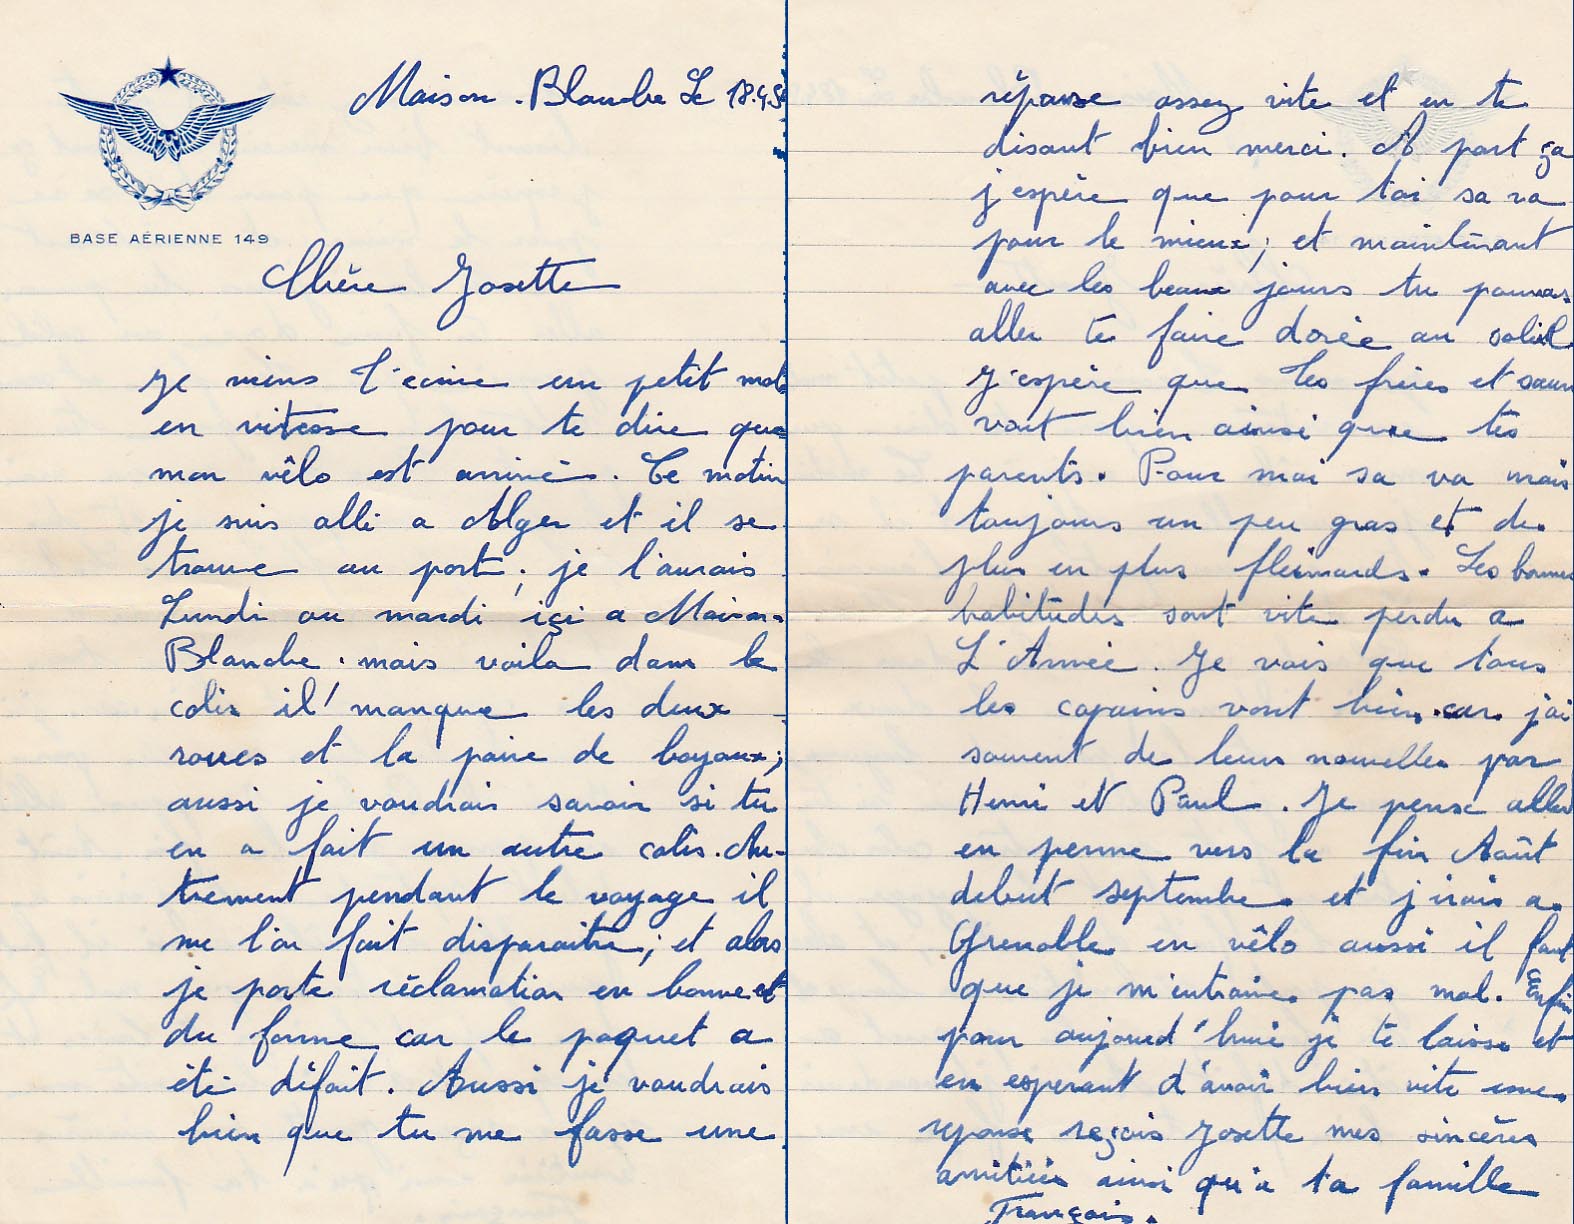 Maison-Blanche Le 18.4.5
BASE AÉRIENNE 149
Chère Josette
Je viens t'ecrire un petit mot
en vitesse pour te dire que
mon vélo est arrivé. Ce matin
je suis allé a Alger et il se
trouve au port; je l'aurais
Lundi ou mardi içi a Maison-
Blanche. mais voila dans le
colis il manque les deux
roues et la paire de boyaux;
aussi je voudrais savoir si tu
en a fait un autre colis. Au-
trement pendant le voyage il
me l'on fait disparaitre; et alors
je porte réclamation en bonne et
du forme car le paquet a
été défait. Aussi je voudrais
bien que tu me fasse une
réponse assez vite et en te
disant bien merci. A part ça
j'espère que pour toi sa va
pour le mieux; et maintenant
avec les beaux jours tu pourras
aller te faire dorée au soleil
J'espère que tes frères et sœurs
vont bien ainsi que tes
parents. Pour moi sa va mais
toujours un peu gras et de
plus en plus fleimards. Les bonnes
habitudes sont vite perdu a
L'Armée. Je vois que tous
les copains vont bien car j'ai
souvent de leurs nouvelles par
Henri et Paul. Je pense aller
en perme vers la fin Août
debut septembre et j'irais a
Grenoble en vélo aussi il faut
que je m'entraine pas mal. Enfin
pour aujourd'hui je te laisse et
en esperant d'avoir bien vite une
reponse reçois Josette mes sincères
amitiés ainsi qu'a ta famille
François.